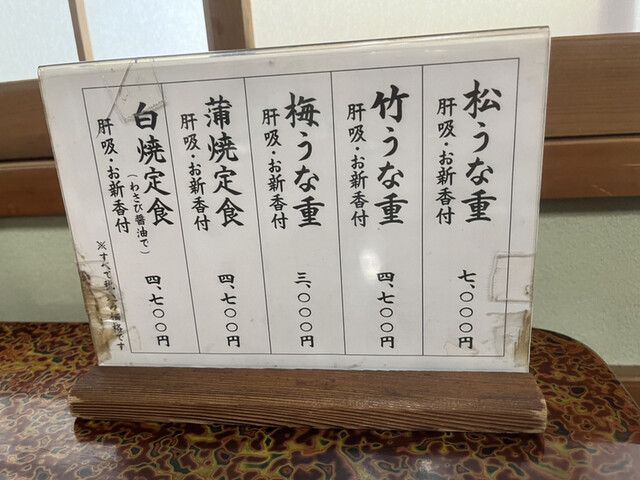 松うな重
肝吸・お新香付
七、〇〇〇円
竹うな重
肝吸・お新香付
四、七〇〇円
梅うな重
肝吸・お新香付
三、〇〇〇円
蒲焼定食
肝吸・お新香付
四、七〇〇円
白焼定食
(わさび醤油で)
肝吸・お新香付
四、七〇〇円
※すべて税込み価格です